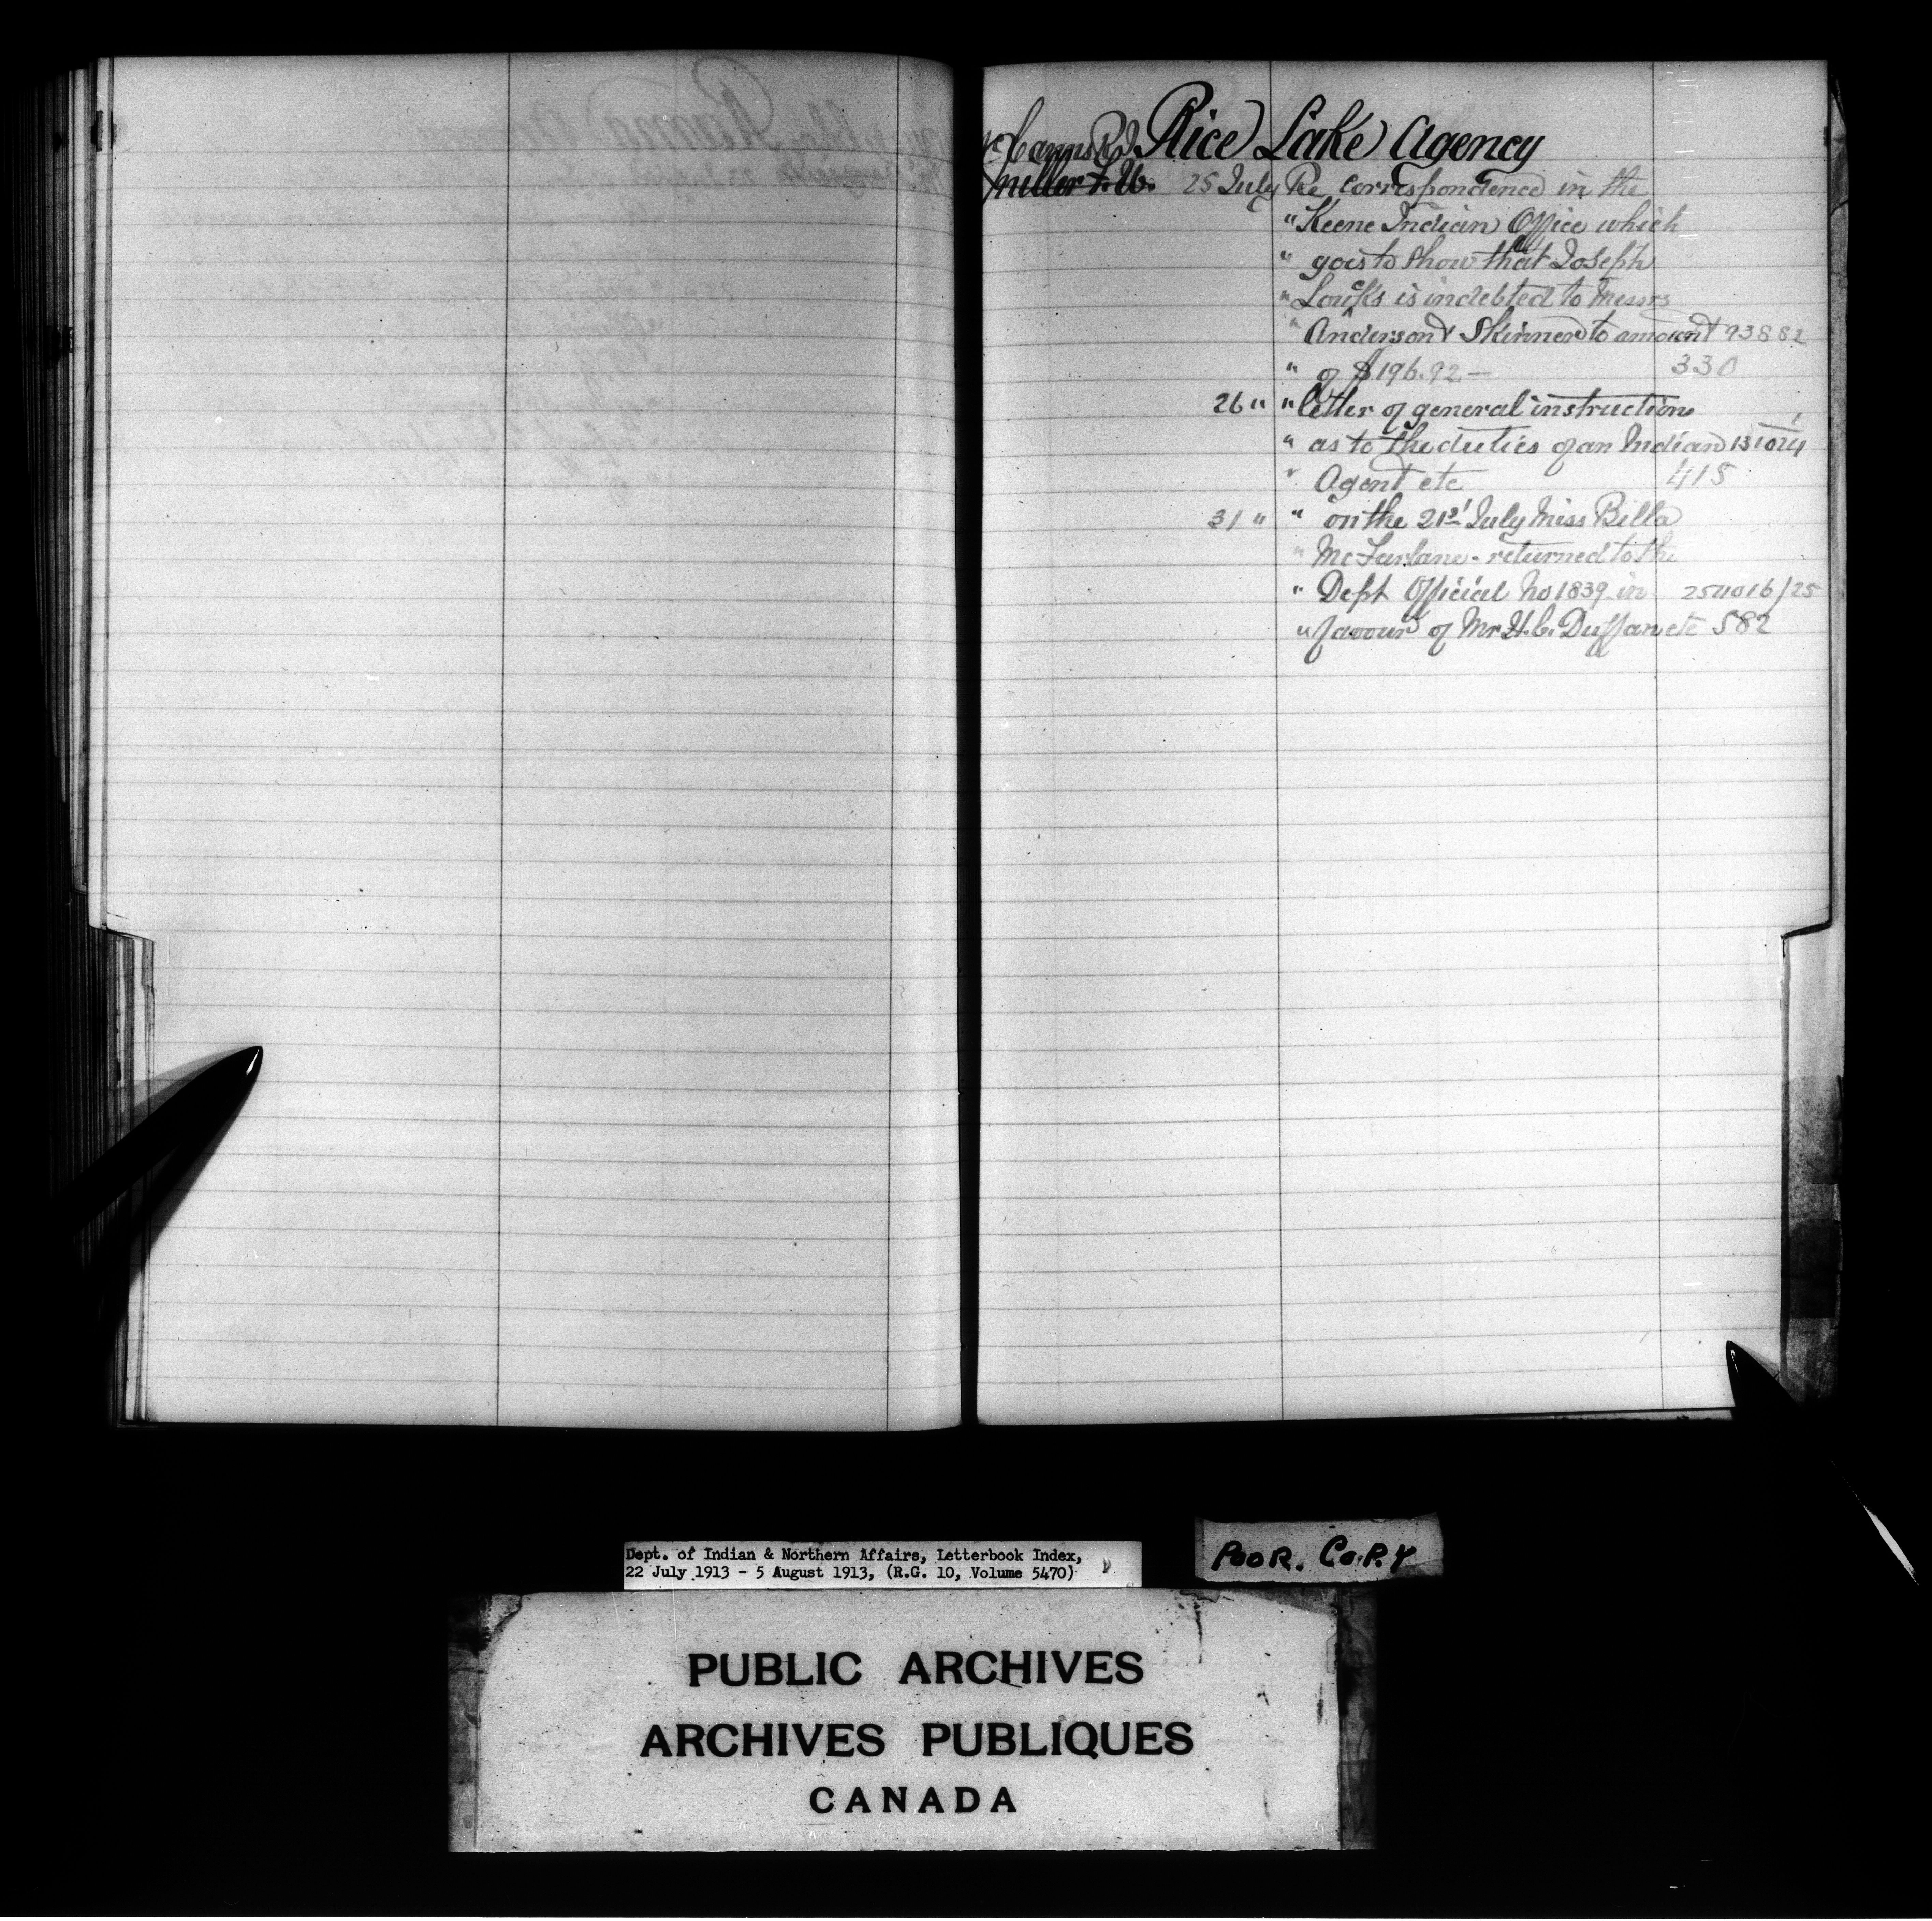 McCanns R.J. Rice Lake Agency
Miller F. W. 25 July Re correspondence in the
" Keene Indian Office which
" goes to show that Joseph
" Loucks is indebted to Messrs
" Anderson & Skinner to amount 93882
" of $196.92 — 330
26 " " letter of general instructions
" as to the duties of an Indian 131024
" Agent etc 415
31 " " on the 21st July Miss Billa
" McFarlane - returned to the
" Dept Official No 1839 in 254016/25
" favour of Mr H. C. Duffan etc 582
Dept. of Indian & Northern Affairs, Letterbook Index,
22 July 1913 - 5 August 1913, (R.G. 10, Volume 5470)
POOR. COPY
PUBLIC ARCHIVES
ARCHIVES PUBLIQUES
CANADA